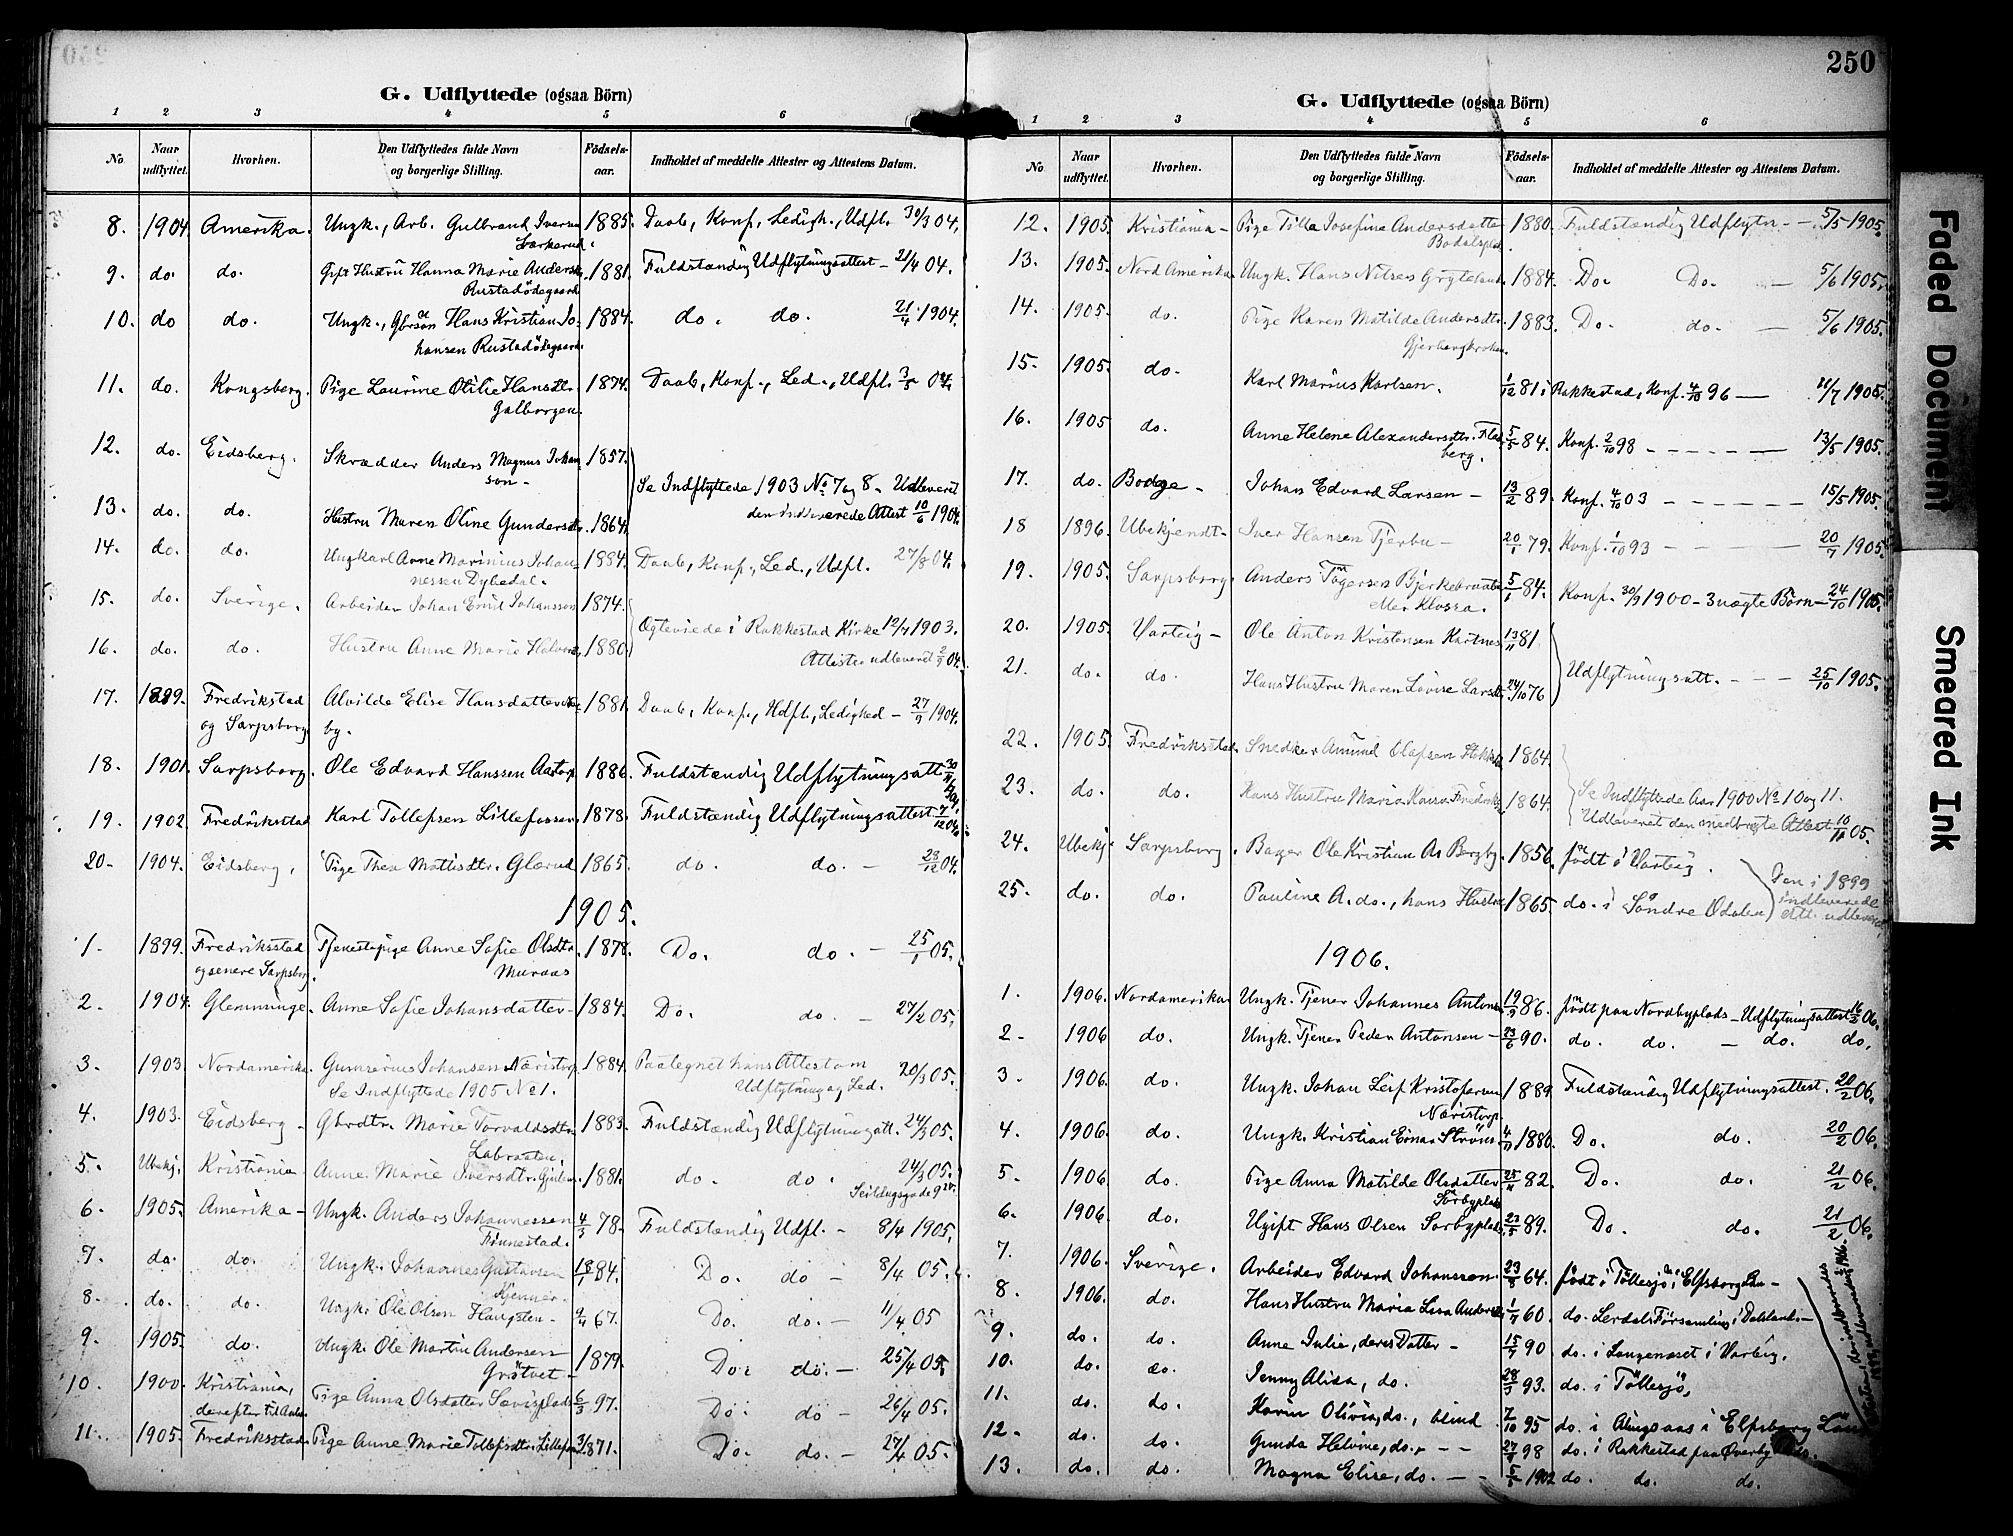 250
G. Udflyttede (ogsaa Börn)
1 2 3 4 5 6
No Naar udflyttet. Hvorhen. Den Udflyttedes fulde Navn og borgerlige Stilling. Födsels-aar. Indholdet af meddelte Attester og Attestens Datum.
8. 1904 Amerika. Ungk., Arb. Gulbrand Iversen 1885. Daab, Konf., Ledigh., Udfl. 30/3 04.
9. do. do. Gift Hustru Hanna Marie Andersd. 1881. Fuldstændig Udflytningsattest - 21/4 04.
Rustadödegaard
10. do do. Ungk., Gbrsön Hans Kristian Jo- 1884. do. do. 21/4 1904.
hansen Rustadödegaard.
11. do. Kongsberg. Pige Laurine Otilie Hansdtr. 1874. Daab, Konf., Led., Udfl. 3/5 04.
12. do. Eidsberg. Skrædder Anders Magnus Johan 1857.
son -
Se Indflyttede 1903 No 7 og 8 - Udleveret
den indleverede Attest 10/6 1904.
13. do. do. Hustru Maren Oline Gundersdtr. 1864.
14. do. do. Ungkarl Arne Marinius Johan- 1884. Daab, Konf., Led., Udfl. 27/8 04.
nessen Dybedal.
15. do. Sverige. Arbeider Johan Emil Johanssen 1874.
Egteviede i Rakkestad Kirke 12/4 1903.
16. do. do. Hustru Anne Marie 1880
Attester udleveret 2/9 04.
17. 1899. Fredrikstad Alvilde Elise Hansdatter 1881. Daab, Konf., Udfl., Ledighed - 27/9 1904.
og Sarpsborg by.
18. 1901. Sarpsborg. Ole Edvard Hanssen Aastorp 1886. Fuldstændig Udflytningsatt. 30/11 04.
19. 1902. Fredriksstad Karl Tollefsen Lillefossen 1878. Fuldstændig Udflytningsattest 7/12 04.
20. 1904. Eidsberg. Pige Thea Mattisdtr. Glærud 1865. do. do. - 23/12 04.
1905.
1. 1899. Fredriksstad Tjenestepige Anne Sofie Olsdtr. 1878. Do. do. - 25/1 05.
og senere Sarpsborg. Muraas
2. 1904. Glemminge. Anne Sofie Johansdatter - 1884. Do. do. - 27/2 05.
3. 1903. Nordamerika. Gunnerius Johansen Næristorp 1884. Paategnet hans Attest om
Se Indflyttede 1905 No 1. Udflytning og Led. 20/3 05.
4. 1903. Eidsberg - Gbrdtr. Marie Torvaldsdtr. 1883. Fuldstændig Udflytningsatt. 24/3 05.
Labraaten.
5. Ubekj. Kristiania Anne Marie Iversdtr. 1881. do. do. 24/3 05.
Seildugsgade 9
6. 1905. Amerika - Ungk. Anders Johannessen 4/5 78. Fuldstændig Udfl. - 8/4 1905.
Finnestad.
7. do. do. Ungk. Johannes Gustavsen 18/1 84. Do. do - 8/4 05.
8. do. do. Ungk. Ole Olsen Haugsten - 2/4 67. Do. do. - 11/4 05
9. 1905. do. Ungk. Ole Martin Andersen 1879. Do. do. - 25/4 05.
Gröstvet -
10. 1900. Kristiania, Pige Anna Olsdatter 6/3 97. Do. do - 26/4 05.
derefter til
11. 1905. Fredriksstad. Pige Anne Marie Tollefsdtr. 3/1 871. Do. do. - 27/4 05.
G. Udflyttede (ogsaa Börn)
1 2 3 4 5 6
No Naar udflyttet. Hvorhen. Den Udflyttedes fulde Navn og borgerlige Stilling. Födsels-aar. Indholdet af meddelte Attester og Attestens Datum.
12. 1905. Kristiania - Pige Tilla Josefine Andersdatter 1880. Fuldstændig Udflytn - 5/5 1905.
13. 1905. Nord Amerika Ungk. Hans Nilsen 1884. Do. Do. - 5/6 1905.
14. 1905. do. Pige Karen Matilde Andersdtr. 1883. Do. do. - 5/6 1905.
15. 1905. do. Karl Marius Karlsen. 1/12 81 i Rakkestad, Konf. 4/10 96 - 11/7 1905.
16. 1905 do. Anne Helene Alexandersdtr. 5/5 84. Konf. 2/10 98 - 13/5 1905.
berg.
17. do. Bodge - Johan Edvard Larsen - 13/2 89. Konf. 4/10 03 - 15/5 1905.
18 1896. Ubekjendt - Iver Hansen Tjerbu - 20/1 79. Konf. 1/10 93 - 20/7 1905.
19. 1905. Sarpsborg. Anders Bjerkebraaten 5/1 84. Konf. 30/9 1900 - 3 uægte Börn - 24/10 1905.
eller Klossa.
20. 1905. Varteig - Ole Anton Kristensen Kartnes 13/11 81
21. do. do. Hans Hustru Maren Lovise Larsdtr. 24/10 76 Udflytningsatt. - 25/10 1905.
22. 1905. Fredriksstad. Snedker Amund Olafsen 1864.
Se Indflyttede Aar 1900 No 10 og 11.
23. do. do. Hans Hustru Maria 1864.
Udleveret den medbragte Attest 10/11 05.
24. Ubekj. Sarpsborg. Bager Ole Kristian As Bergby. 1856. födt i Varteig.
25. do. do. Pauline A. do., hans Hustru 1865. do. i Söndre Odalen
Den i 1899
indleverede
Att. udleveret
1906.
1. 1906. Nordamerika Ungk. Tjener Johannes Antons 19/9 86. födt paa Nordbyplads - Udflytningsattest 16/2 06.
2 - 1906 do. Ungk. Tjener Peder Antonsen - 23/6 90. do. do. - do. do.
3. 1906. do. Ungk. Johan Leif Kristofersen 1889. Fuldstændig Udflytningsattest. 20/2 06.
Næristorp
4. 1906. do. Ungk. Kristian Einar Ström 4/11 1880. Do. do. 20/2 06.
5. 1906. do. Pige Anna Matilde Olsdatter 25/11 82. Do. do. 21/2 06.
Sörbyplads
6. 1906. do. Ugift Hans Olsen Sorbyplads. 23/5 89. Do. do. 21/2 06.
7. 1906. Sverige. Arbeider Edvard Johanssen. 23/8 64. födt i Töllesjö i Elfsborg Län -
8. 1906. do. Hans Hustru Maria Lisa Andersd. 1/7 60. do. Lerdals Församling i Dalsland. -
9. do. do. Anne Julie, deres Datter - 15/7 90 do. i Langenæset i Varteig.
10. do. do. Jenny Alida, do. 28/3 93. do. i Töllesjö,
11. do. do. Karin Olivia, do., blind 7/10 95 do. i Alingsaas i Elfsborg Län
12. do. do. Gunda Helvine, do. - - 27/4 98 do. i Rakkestad paa Överby
13. do. do. Magna Elise, do. - - 5/5 1902 do. do. do.
Faded Document
Smeared Ink